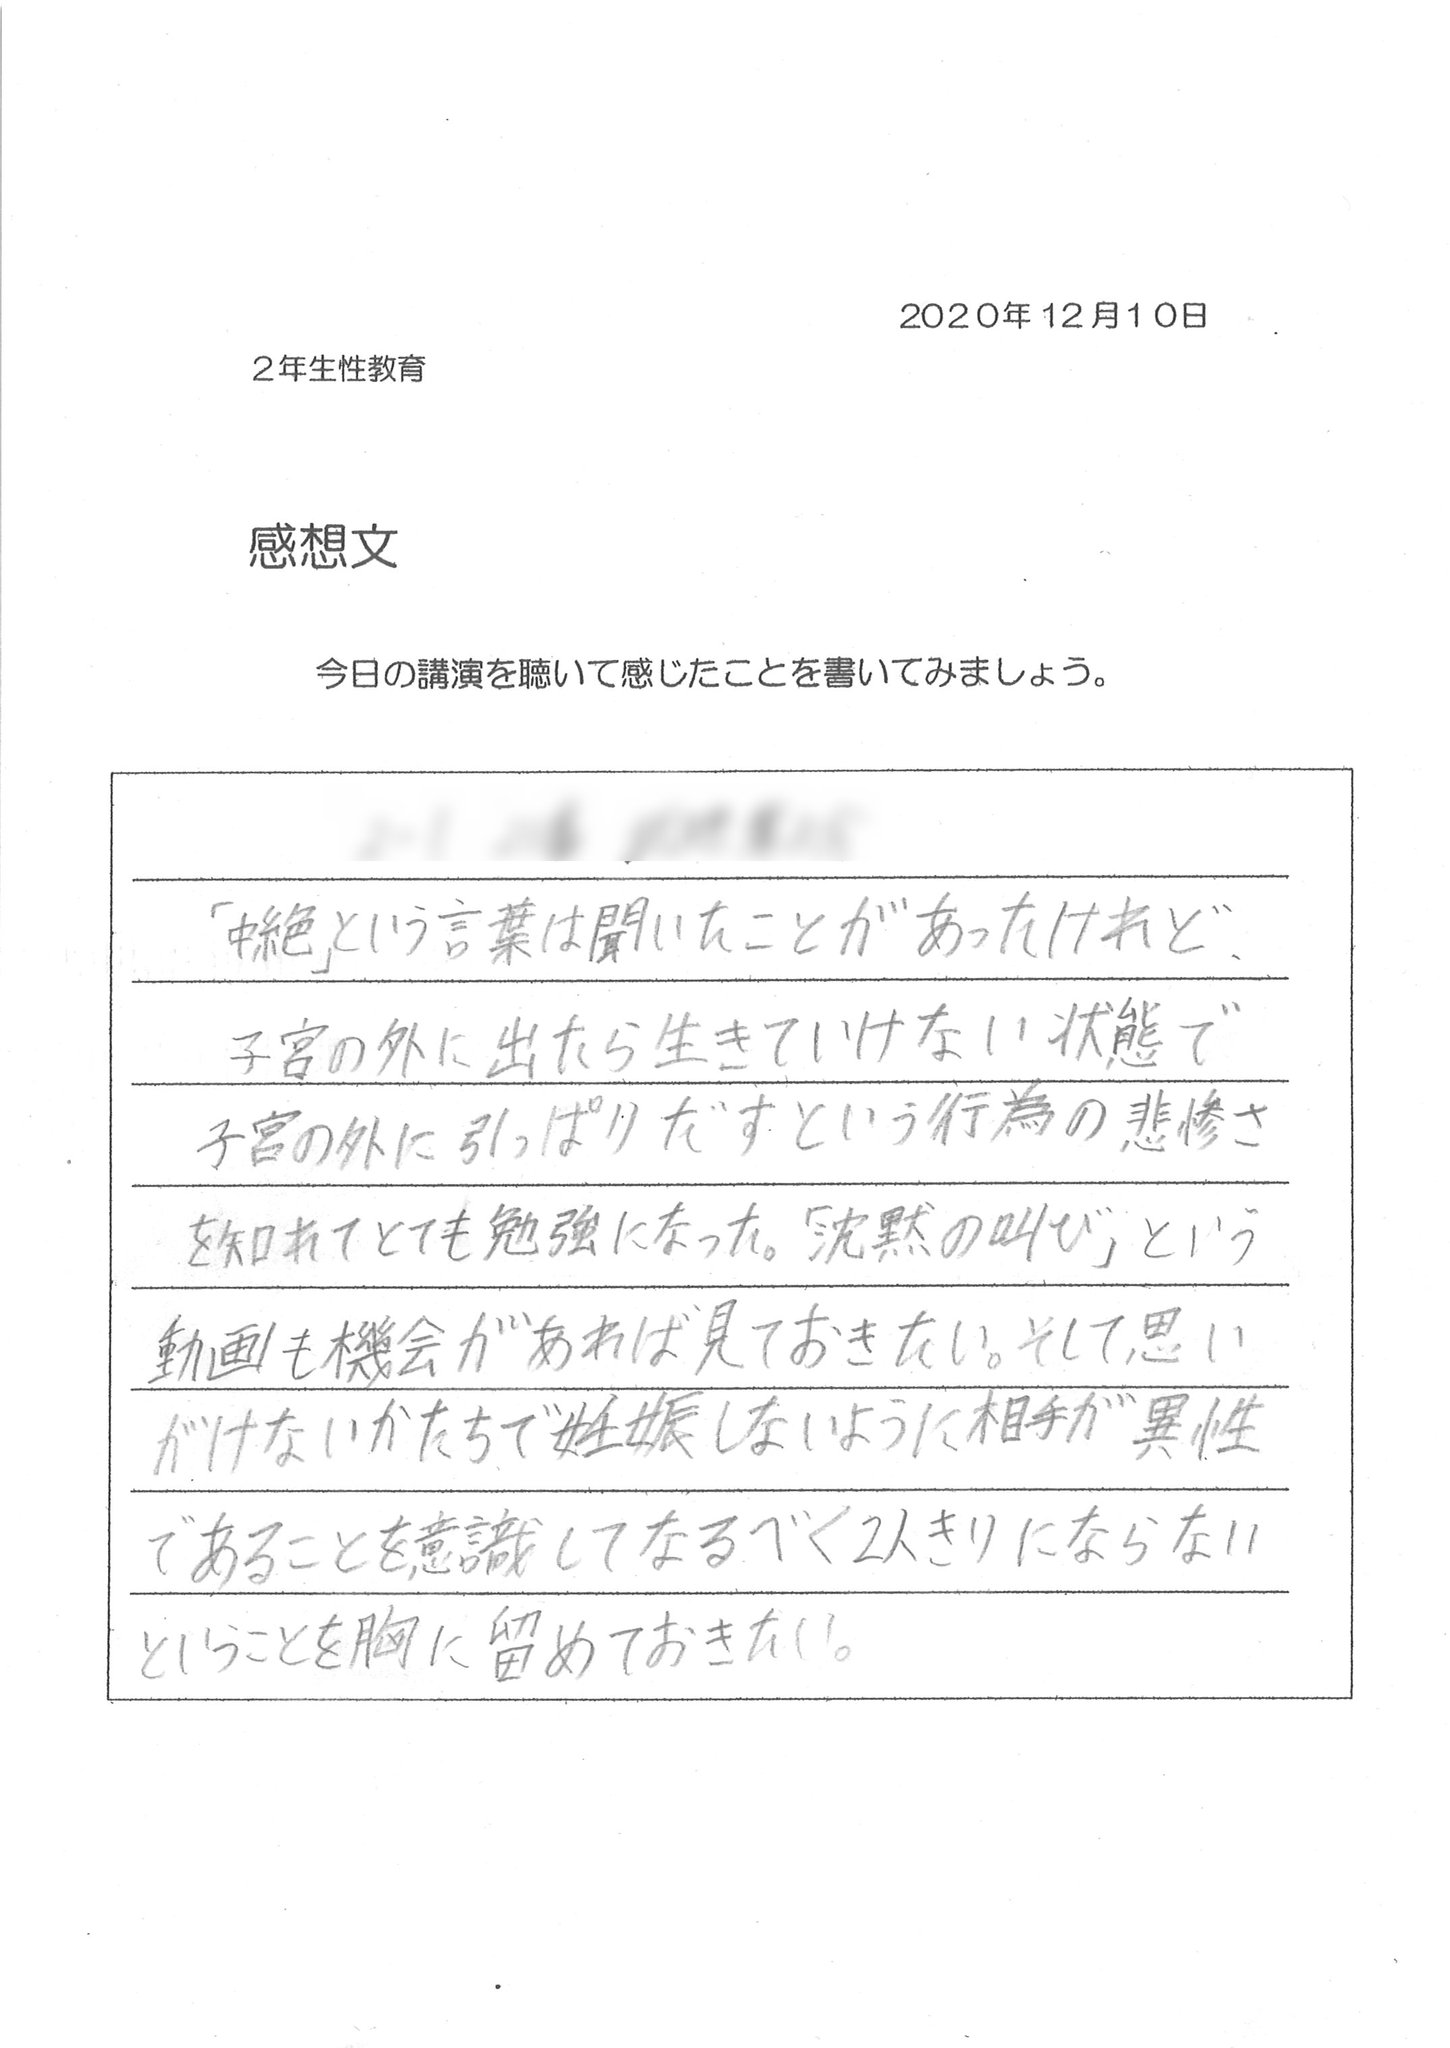 2020年12月10日
2年生性教育
感想文
今日の講演を聴いて感じたことを書いてみましょう。
「中絶」という言葉は聞いたことがあったけれど、
子宮の外に出たら生きていけない状態で
子宮の外に引っぱりだすという行為の悲惨さ
を知れてとても勉強になった。「沈黙の叫び」という
動画も機会があれば見ておきたい。そして、思い
がけないかたちで妊娠しないように相手が異性
であることを意識してなるべく2人きりにならない
ということを胸に留めておきたい。